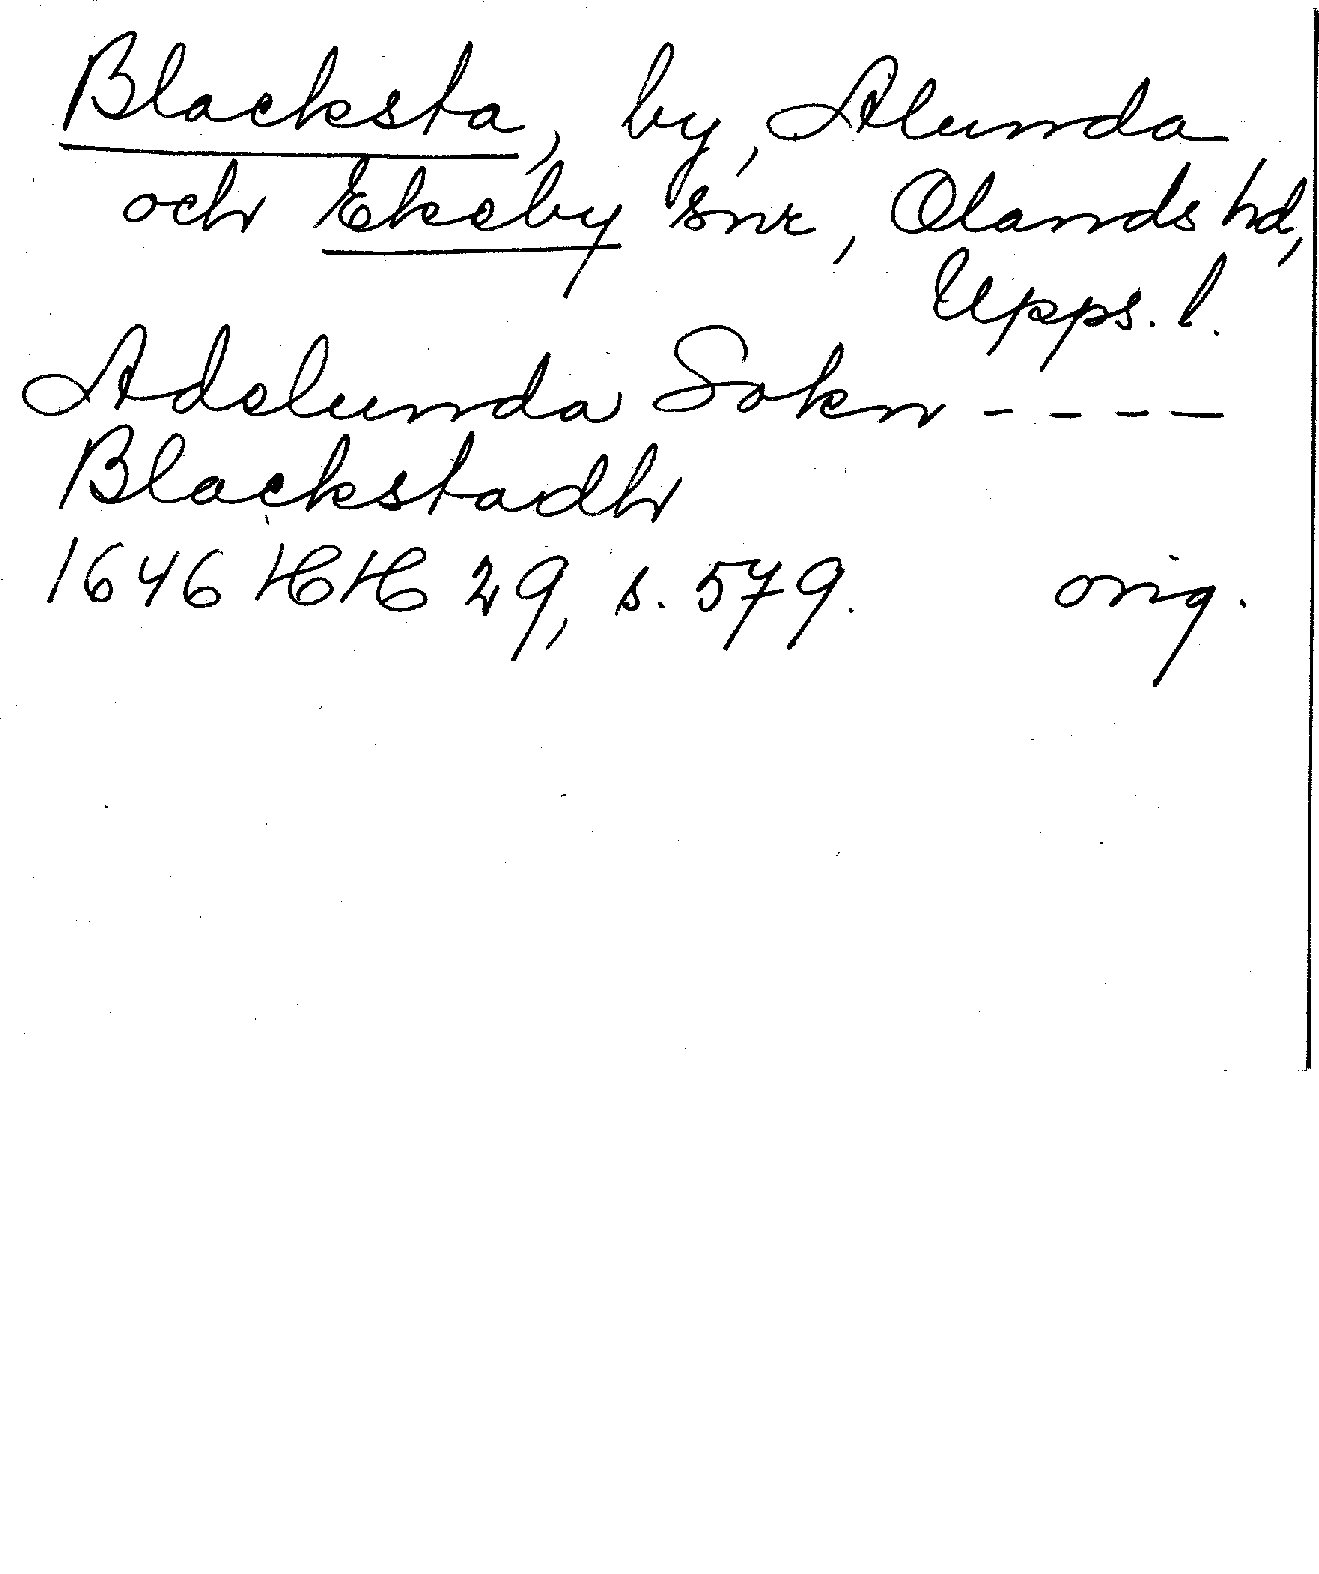 Blacksta, by, Alunda
och Ekeby snr, Olands hd,
Upps. l.
Adelunda Sokn - - - -
Blackstadh
1646 HH 29, s. 579. orig.